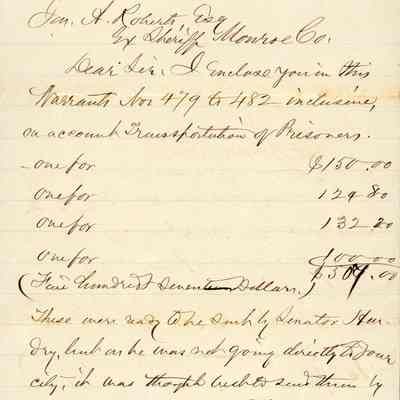 Jon. A. Roberts, Esq
Ex Sheriff Monroe Co.
Dear Sir. I enclose you in this
Warrants Nos 479 to 482 inclusive,
on account Transportation of Prisoners.
one for $150.00
one for 124 80
one for 132 20
one for 100 00
$507.00
(Five hundred seven Dollars.)
These were ready to be sent by Senator Hur-
dry, but as he was not going directly to your
city, it was though best to send them by